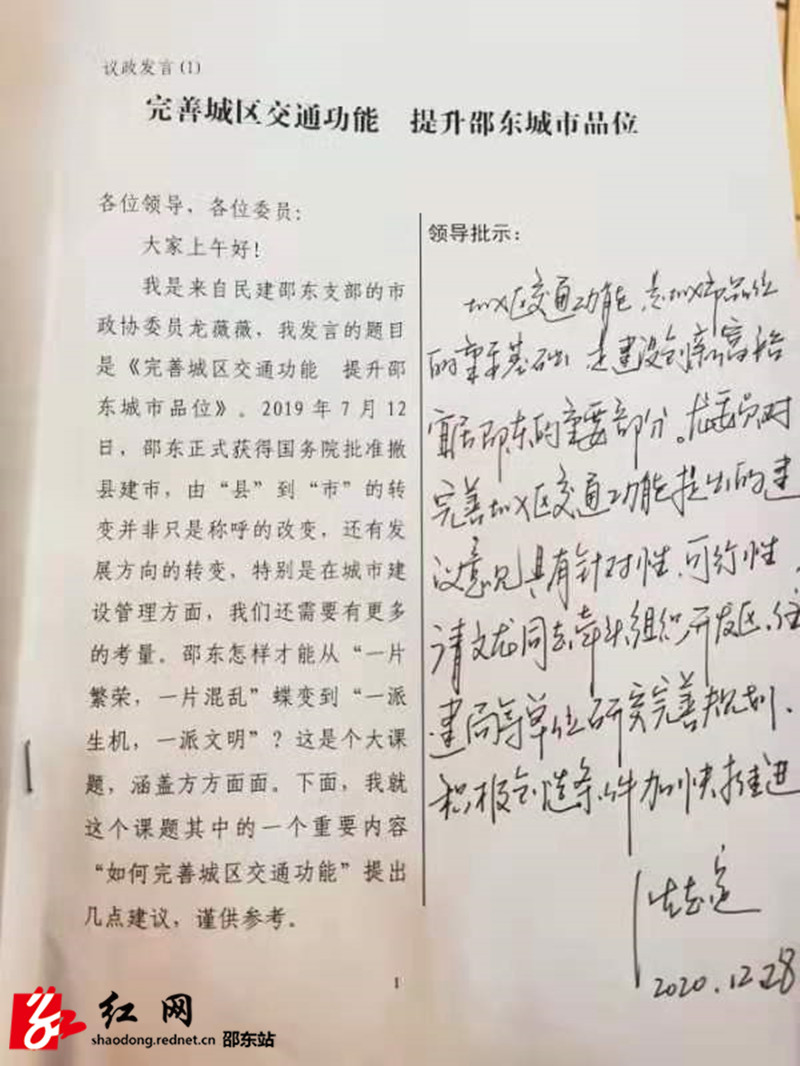 议政发言(1)
完善城区交通功能 提升邵东城市品位
各位领导，各位委员：
大家上午好！
我是来自民建邵东支部的市
政协委员龙薇薇，我发言的题目
是《完善城区交通功能 提升邵
东城市品位》。2019年7月12
日，邵东正式获得国务院批准撤
县建市，由“县”到“市”的转
变并非只是称呼的改变，还有发
展方向的转变，特别是在城市建
设管理方面，我们还需要有更多
的考量。邵东怎样才能从“一片
繁荣，一片混乱”蝶变到“一派
生机，一派文明”？这是个大课
题，涵盖方方面面。下面，我就
这个课题其中的一个重要内容
“如何完善城区交通功能”提出
几点建议，谨供参考。
1
领导批示：
城区交通功能是城市品位
的重要基础，是建设创新富裕
宜居邵东的重要部分。龙委员对
完善城区交通功能提出的建
议意见具有针对性、可行性，
请文龙同志牵头组织开发区、住
建局等单位研究完善规划、
积极创造条件加快推进
2020.12.28
红网
shaodong.rednet.cn 邵东站